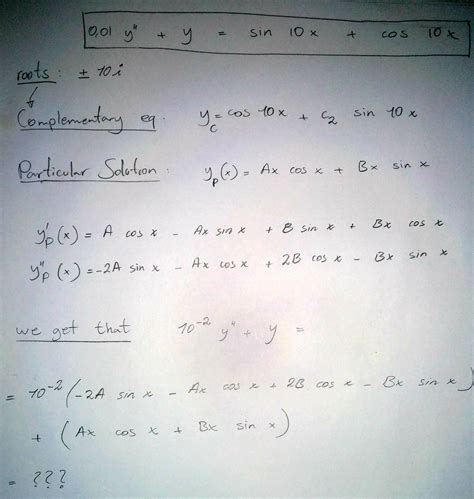 0,01 y" + y = sin 10x + cos 10x
roots : ± 10i
Complementary eq. y_c = cos 10x + c₂ sin 10x
Particular Solution : y_p(x) = Ax cos x + Bx sin x
y'_p(x) = A cos x - Ax sin x + B sin x + Bx cos x
y"_p(x) = -2A sin x - Ax cos x + 2B cos x - Bx sin x
we get that 10⁻² y" + y =
= 10⁻² (-2A sin x - Ax cos x + 2B cos x - Bx sin x)
+ (Ax cos x + Bx sin x)
= ???